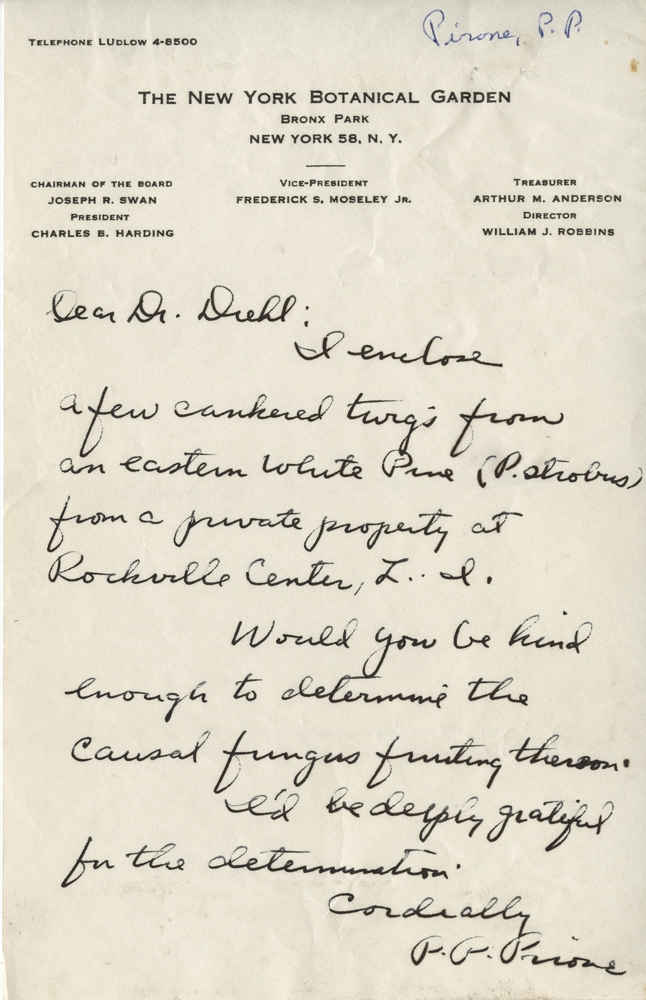 Pirone, P. P.
TELEPHONE LUDLOW 4-8500
THE NEW YORK BOTANICAL GARDEN
BRONX PARK
NEW YORK 58, N. Y.
CHAIRMAN OF THE BOARD
JOSEPH R. SWAN
PRESIDENT
CHARLES B. HARDING
VICE-PRESIDENT
FREDERICK S. MOSELEY JR.
TREASURER
ARTHUR M. ANDERSON
DIRECTOR
WILLIAM J. ROBBINS
Dear Dr. Diehl:
I enclose
a few cankered twigs from
an eastern White Pine (P. strobus)
from a private property at
Rockville Center, L. I.
Would you be kind
enough to determine the
causal fungus fruiting thereon.
I'd be deeply grateful
for the determination.
Cordially
P. P. Pirone